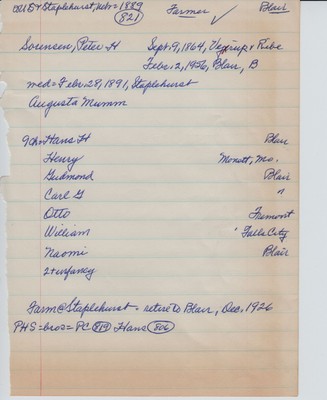 Staplehurst, Nebr = 1889 Farmer ✓ Blair
821
Sorensen, Peter H Sept. 9, 1864, Ribe
Febr. 2, 1956, Blair, B
med = Febr. 28, 1891, Staplehurst
Augusta Mumm
9 Ch = Hans H Blair
Henry Monett, Mo.
Gudmond Blair
Carl G "
Otto Fremont
William Falls City
Naomi Blair
2 + infancy
Farm @ Staplehurst - retire to Blair, Dec. 1926
PHS = bros = PC 819 Hans 806